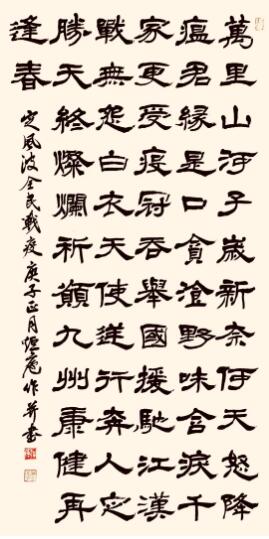 萬里山河子歲新奈何天怒降
瘟君緣是口貪湌野味含淚千
家更受疫冠吞舉國援馳江漢
戰無怨白衣天使逆行奔人定
勝天終燦爛祈願九州康健再
逢春
定風波全民戰疫庚子正月庵作並書